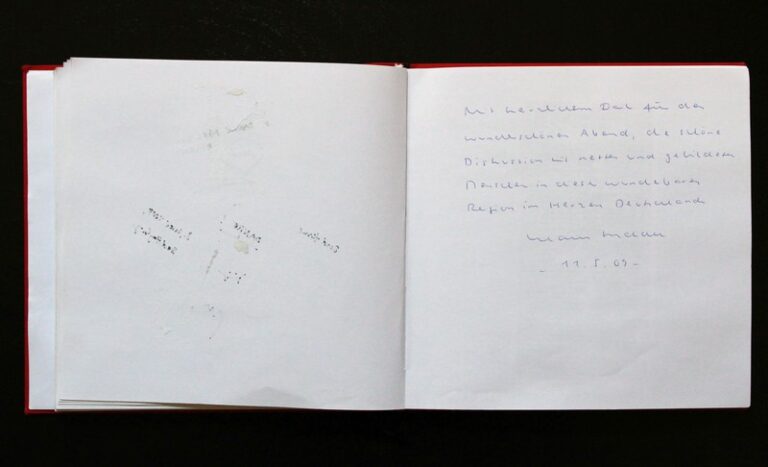 Mit herzlichem Dank für den
wunderschönen Abend, die schöne
Diskussion mit netten und gebildeten
Menschen in dieser wunderbaren
Region im Herzen Deutschlands
- 11.5.09 -